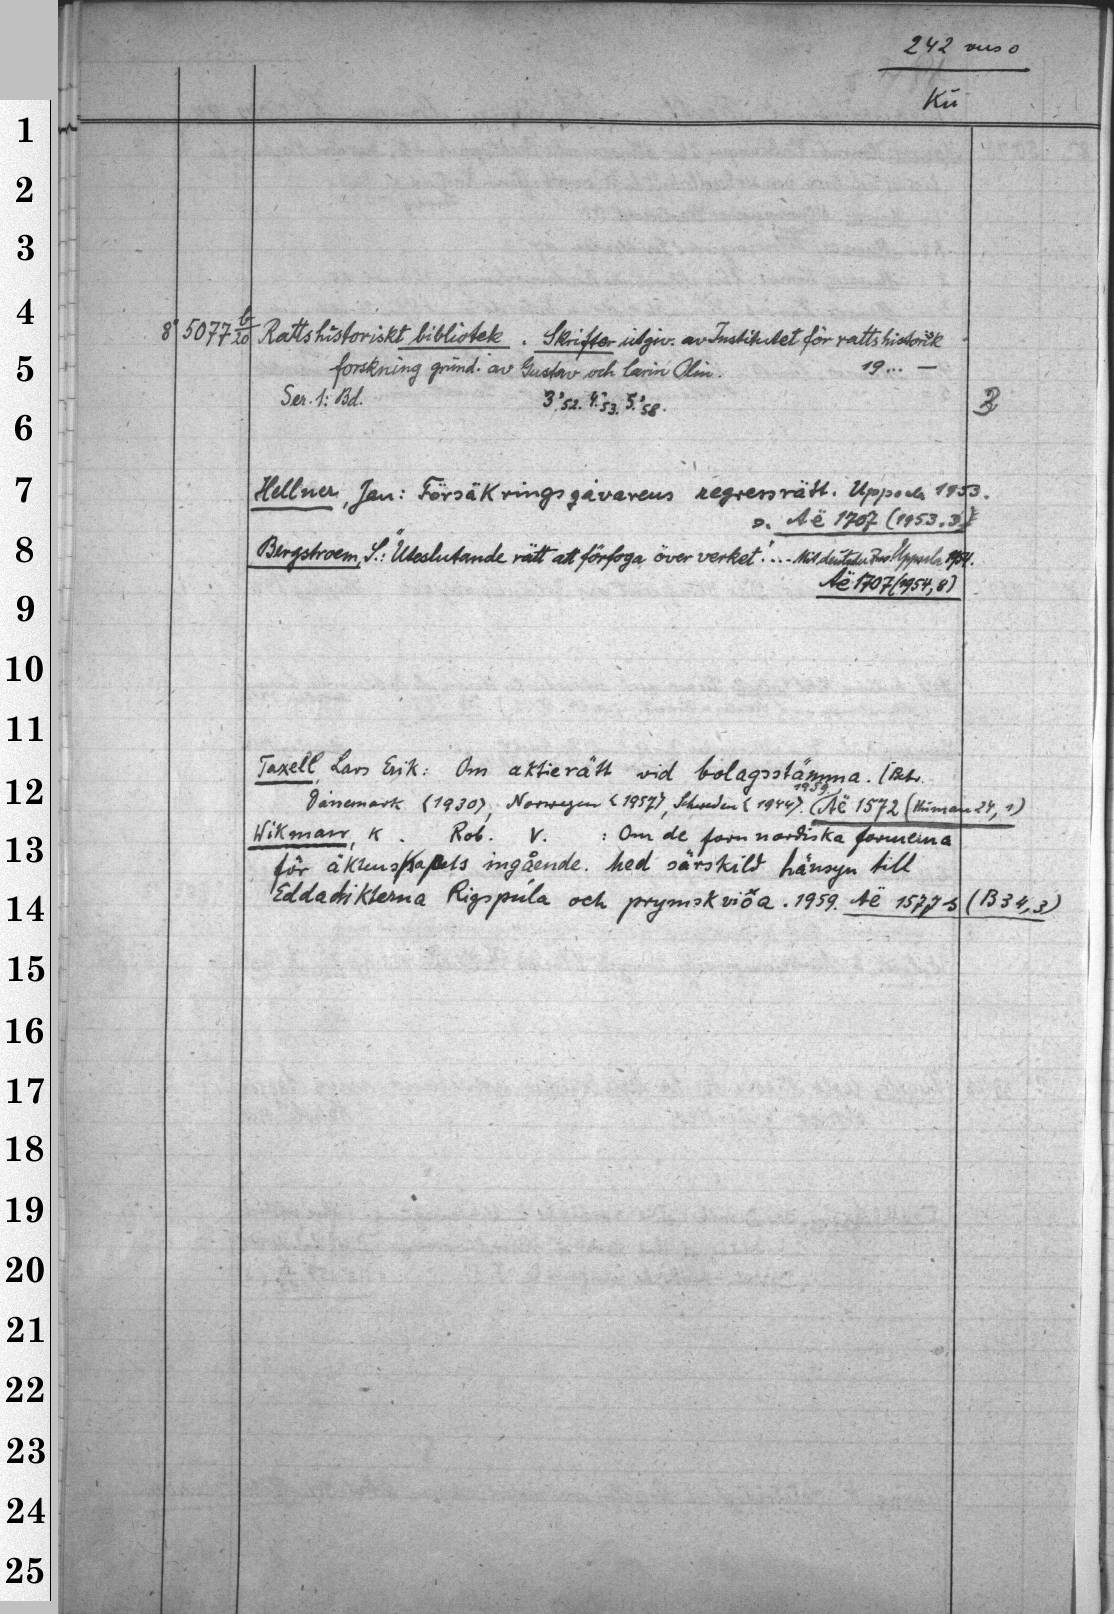 242 verso
Kü
1
2
3
4
5
6
7
8
9
10
11
12
13
14
15
16
17
18
19
20
21
22
23
24
25
8° 5077 b/20 Rattshistoriskt bibliotek. Skrifter utgiv. av Institutet för rattshistorik
forskning grund. av Gustav och Carin Olin. 19... —
Ser. 1: Bd. 3.'52. 4.'53. 5.'58.
Hellner, Jan: Försäkringsgivarens regressrätt. Uppsala 1953.
s. Aë 1707 (1953,3)
Bergstroem, S.: "Uteslutande rätt att förfoga över verket"... Mit deutscher Zus. Uppsala 1954.
Aë 1707 (1954,8)
Taxell, Lars Erik: Om aktierätt vid bolagsstämma. (Betr.
Dänemark <1930>, Norwegen <1957>, Schweden <1944>. 1959. (Aë 1572 (Human 24,1)
Wikman, K. Rob. V. : Om de fornnordiska formerna
för äktenskapets ingående. Med särskild hänsyn till
Eddadikterna Rigspúla och prymskviða. 1959. Aë 1577-s (B 34,3)